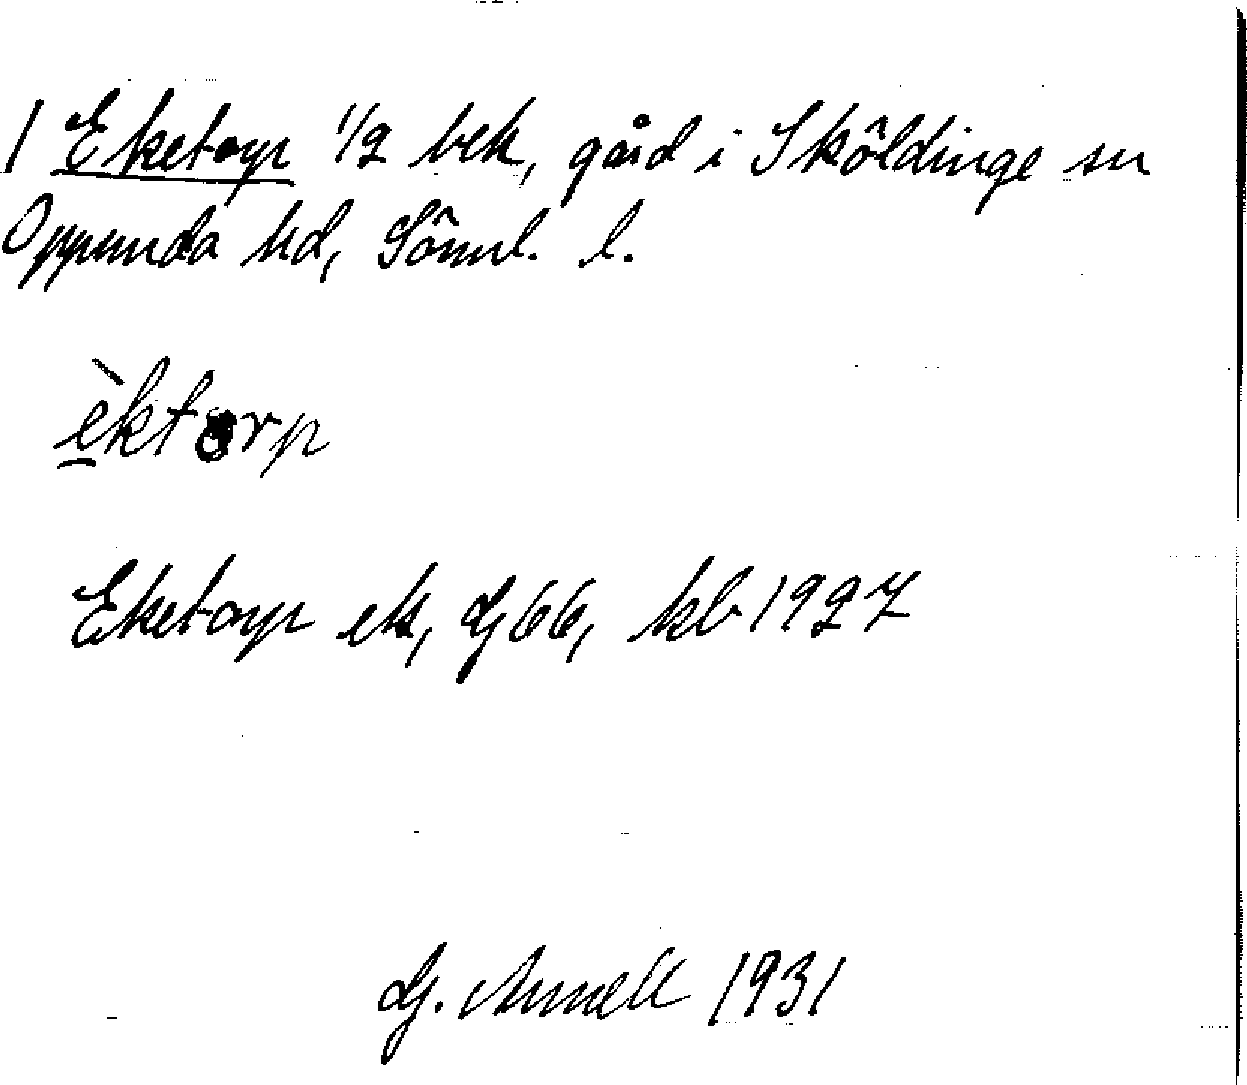 1 Eketorp 1/2 bek, gård i Sköldinge sn
Oppunda hd, Söml. l.
èktorp
Eketorp ek, G 66, kb 1927
G. Annell 1931